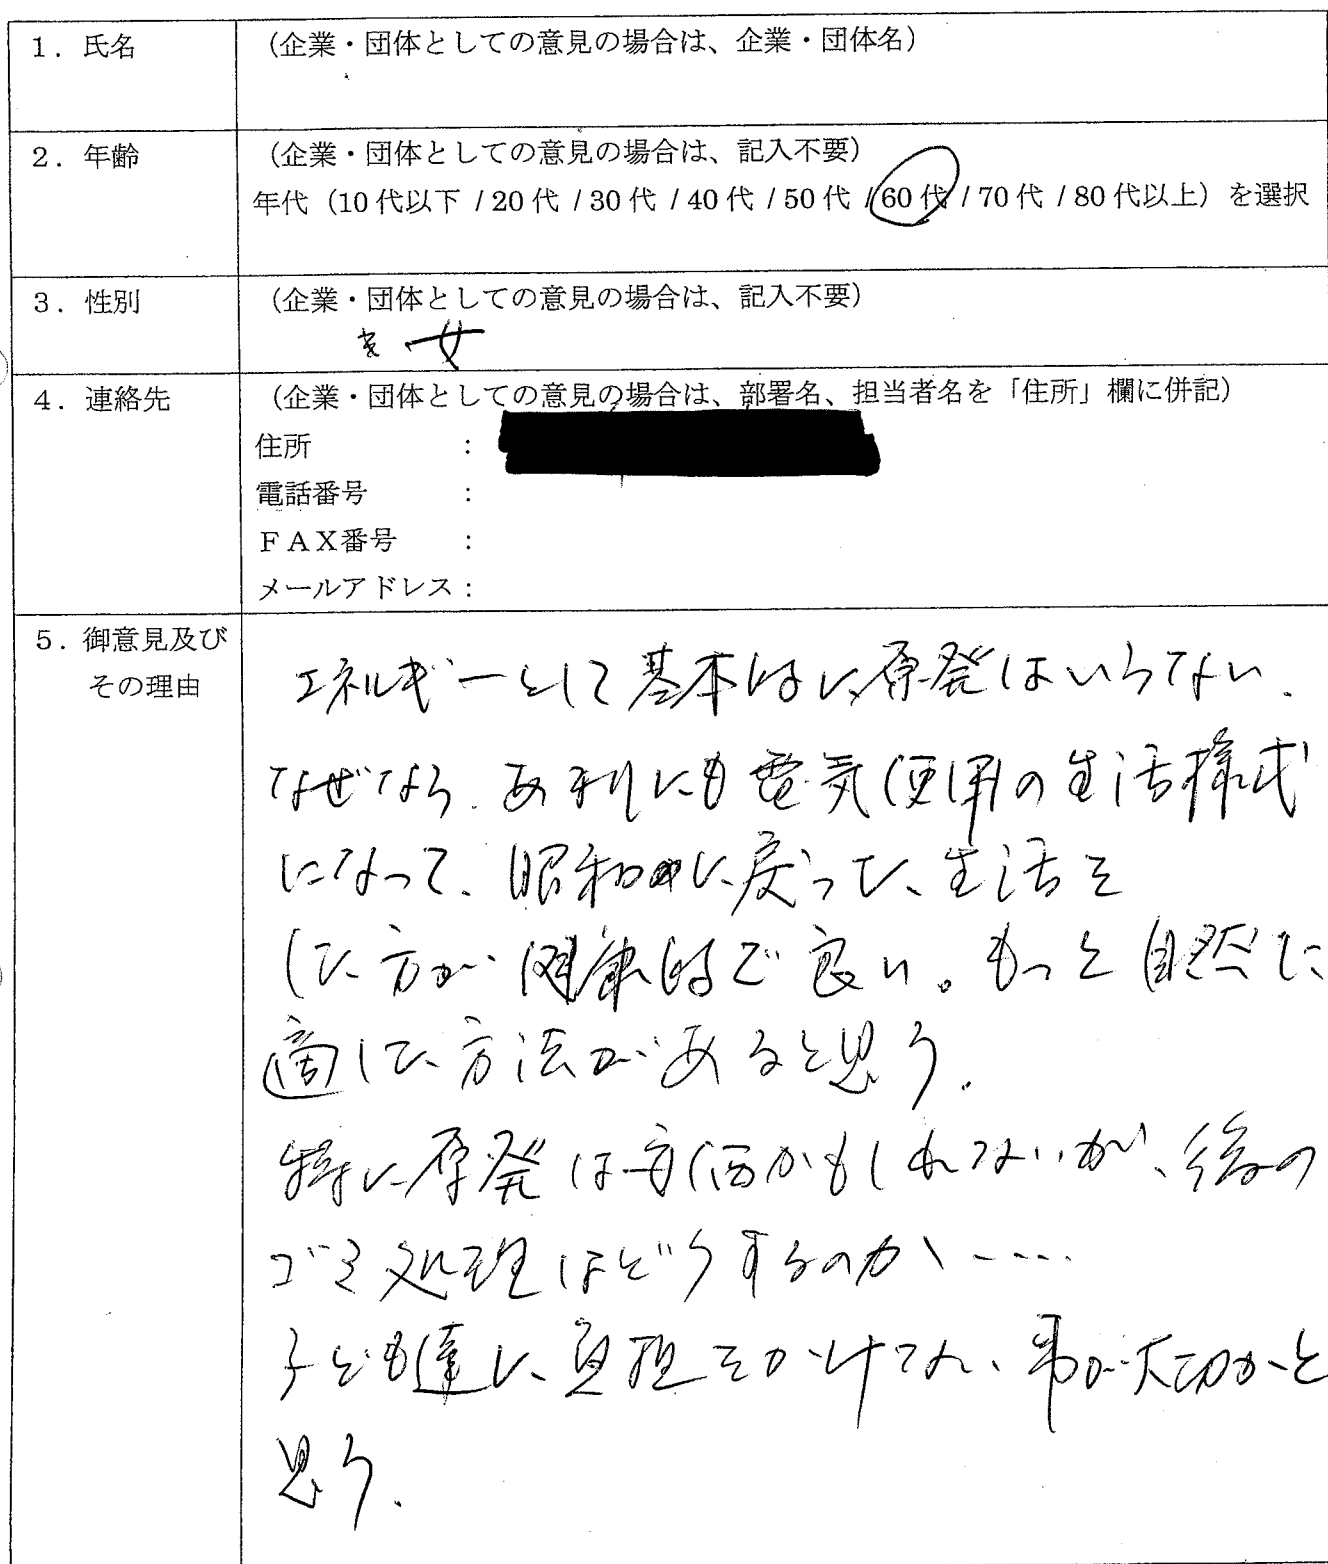 1. 氏名
(企業・団体としての意見の場合は、企業・団体名)
2. 年齢
(企業・団体としての意見の場合は、記入不要)
年代(10代以下 / 20代 / 30代 / 40代 / 50代 / 60代 / 70代 / 80代以上)を選択
3. 性別
(企業・団体としての意見の場合は、記入不要)
女
4. 連絡先
(企業・団体としての意見の場合は、部署名、担当者名を「住所」欄に併記)
住所 :
電話番号 :
FAX番号 :
メールアドレス:
5. 御意見及び
その理由
エネルギーとして基本的に原発はいらない.
なぜなら. あまりにも電気使用の生活様式
になって. 昭和に戻った、生活を
した方が健康的で良い。もっと自然に
適した方法があると思う.
特に原発は安価かもしれないが、後の
ゴミ処理はどうするのか、----
子ども達に負担をかけない事が大切かと
思う.